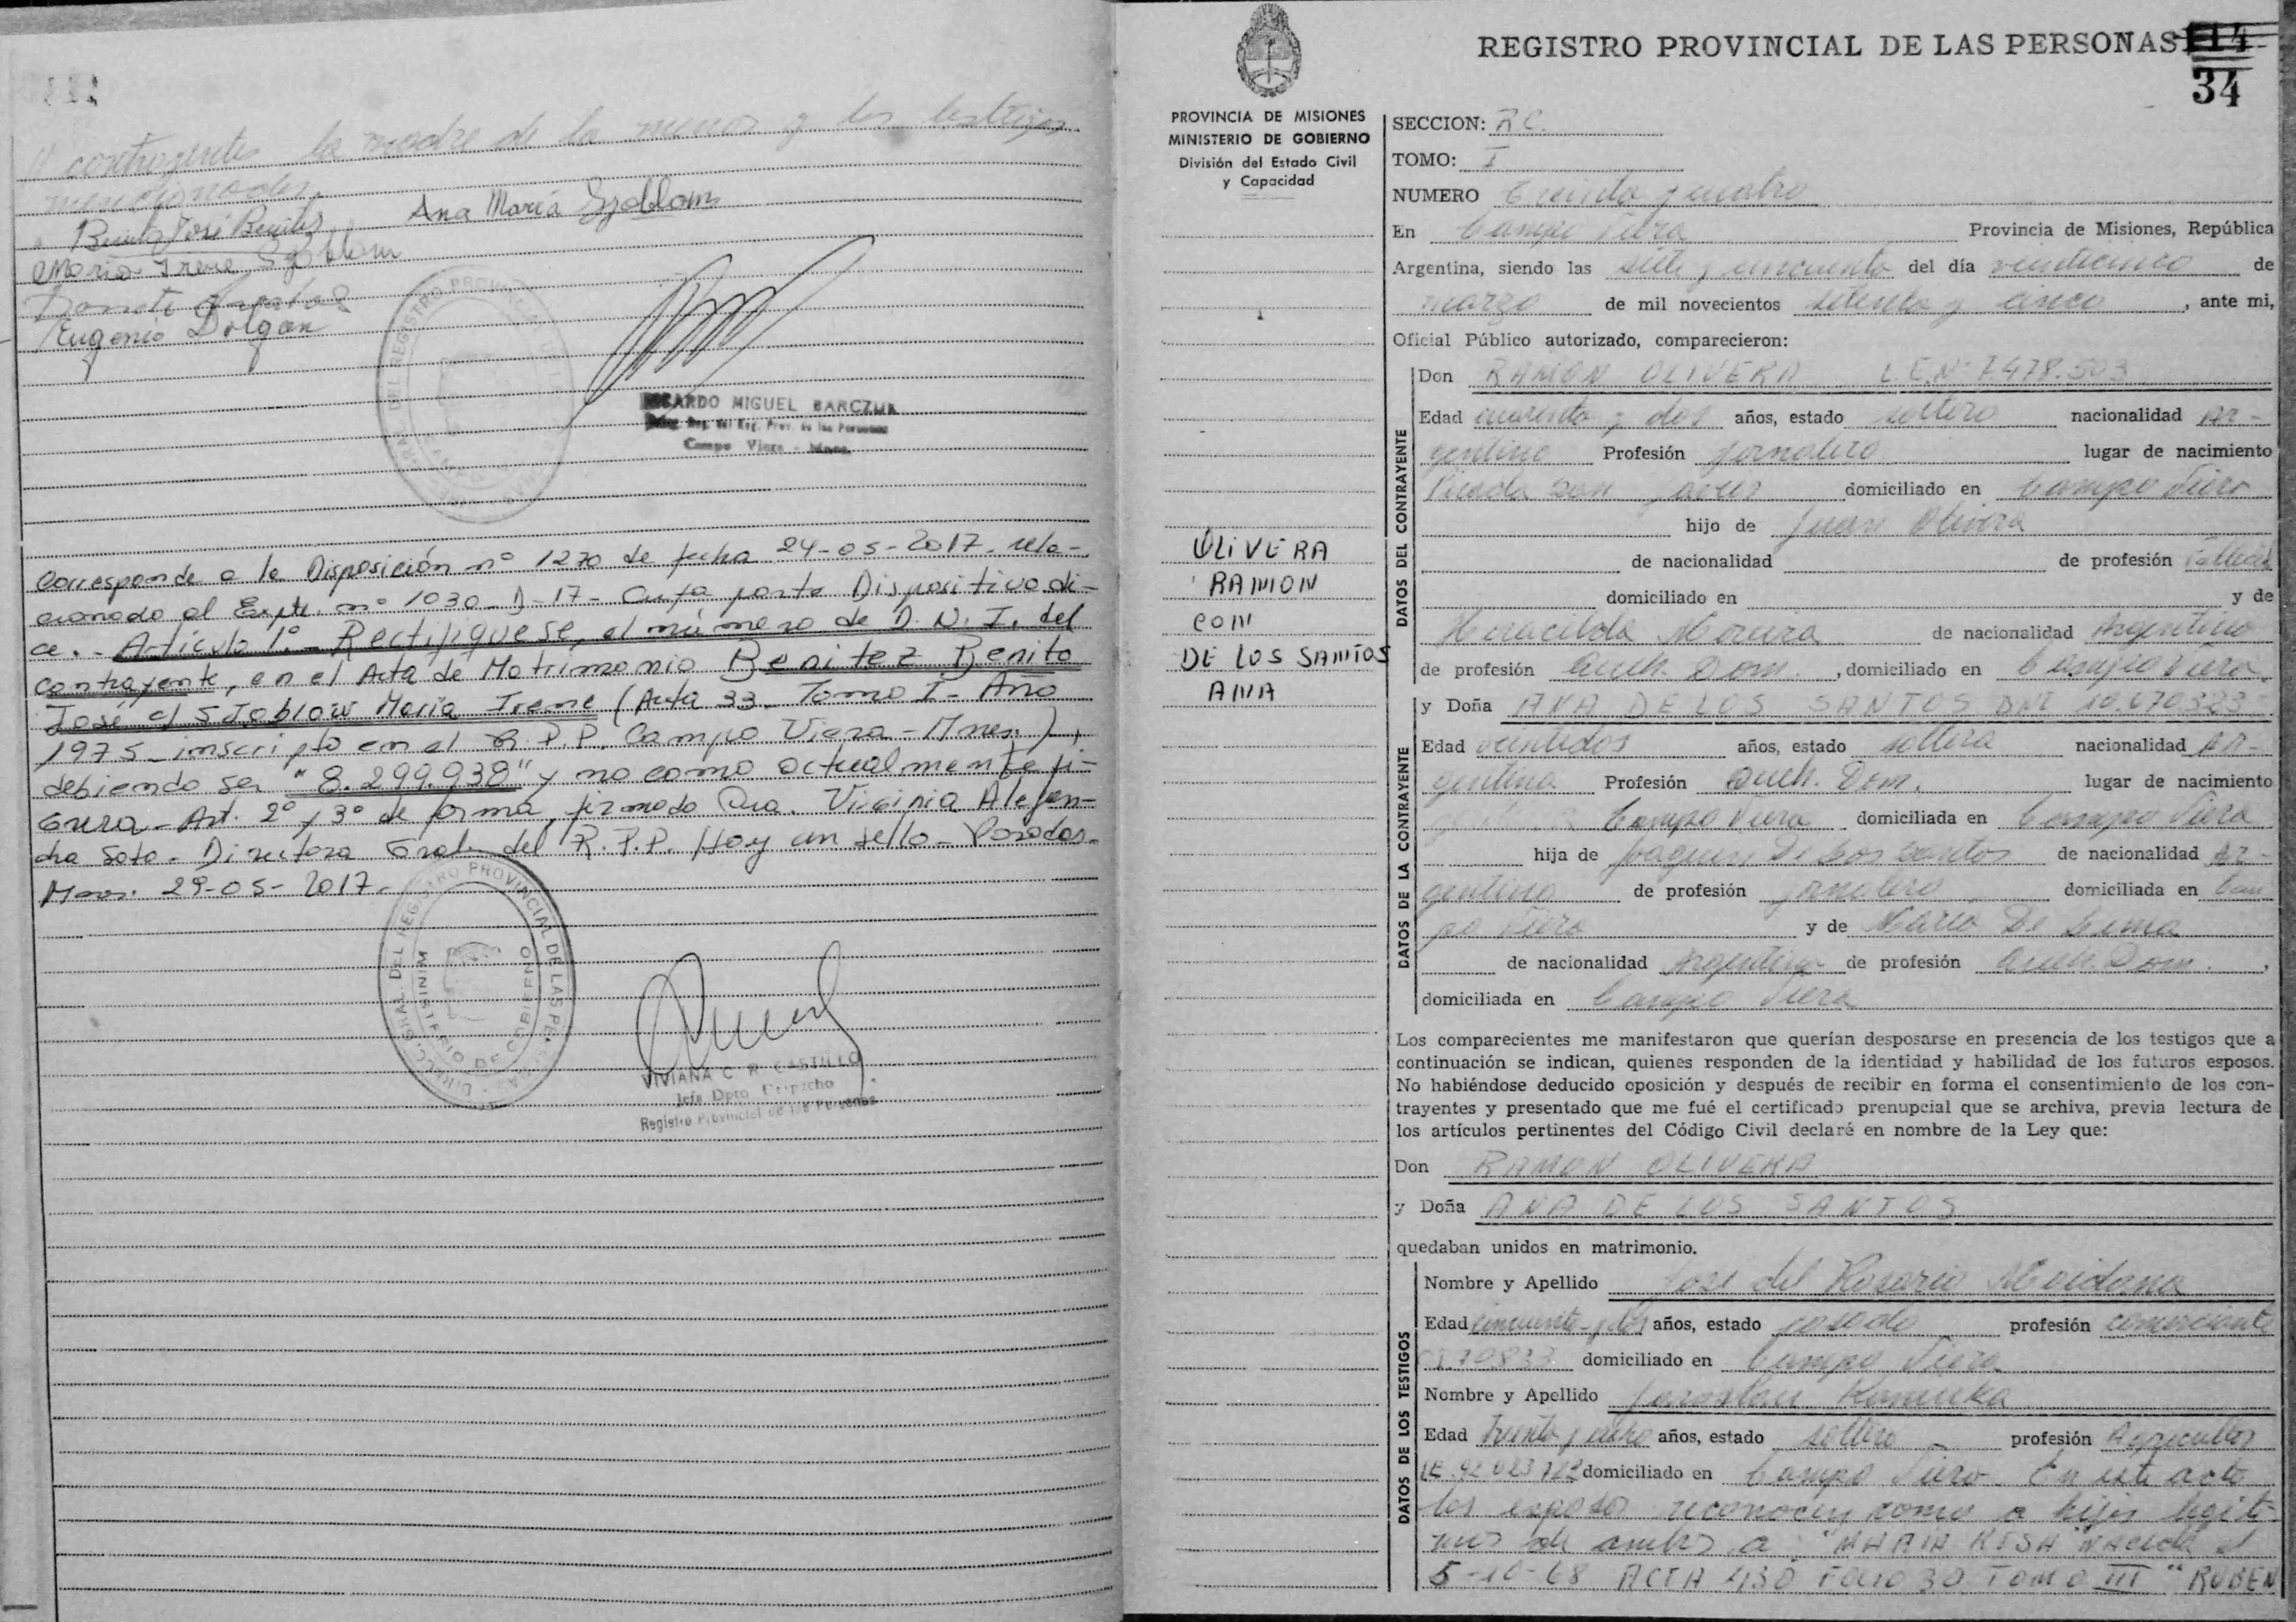 // contrayentes la madre de la menor y los testigos
mencionados.
Benito José Benitez Ana María Szoblom
Maria Irene
Eugenio Dolgan
RICARDO MIGUEL BARCZUK
Campo Viera - Mnes.
Corresponde a la Disposición nº 1270 de fecha 24-05-2017. rela-
cionado al Expte. nº 1030-D-17- Cuya parte Dispositiva di-
ce.- Artículo 1º- Rectifíquese, el número de D.N.I. del
contrayente, en el Acta de Matrimonio Benitez Benito
José c/ Maria Irene (Acta 33- Tomo I- Año
1975- inscripto en el R.P.P. Campo Viera - Mnes.),
debiendo ser "8.299.938" y no como actualmente fi-
gura- Art. 2º y 3º de forma, firmado Dra. Virginia Alejan-
dra Soto- Directora Gral. del R.P.P. Hay un sello- Posadas-
Mnes. 29-05-2017.
DIREC. GRAL. DEL REGISTRO PROVINCIAL DE LAS PERSONAS
MINISTERIO DE GOBIERNO
VIVIANA C. R. CASTILLO
Jefa Dpto Despacho
Registro Provincial de las Personas
REGISTRO PROVINCIAL DE LAS PERSONAS 114
34
PROVINCIA DE MISIONES
MINISTERIO DE GOBIERNO
División del Estado Civil
y Capacidad
OLIVERA
RAMON
CON
DE LOS SANTOS
ANA
SECCION: R.C.
TOMO: I
NUMERO treinta y cuatro
En Campo Viera Provincia de Misiones, República
Argentina, siendo las siete y cincuenta del día veinticinco de
marzo de mil novecientos setenta y cinco, ante mi,
Oficial Público autorizado, comparecieron:
DATOS DEL CONTRAYENTE
Don RAMON OLIVERA L.E.Nº 7.478.503
Edad cuarenta y dos años, estado soltero nacionalidad Ar-
gentino Profesión jornalero lugar de nacimiento
Picada San Javier domiciliado en Campo Viera
hijo de Juan Olivera
de nacionalidad de profesión
domiciliado en y de
Moreira de nacionalidad Argentina
de profesión Queh. Dom., domiciliado en Campo Viera
DATOS DE LA CONTRAYENTE
y Doña ANA DE LOS SANTOS DNI 10.670.323
Edad veintidos años, estado soltera nacionalidad Ar-
gentina Profesión Queh. Dom. lugar de nacimiento
Campo Viera domiciliada en Campo Viera
hija de Joaquin De Los Santos de nacionalidad Ar-
gentino de profesión jornalero domiciliada en Cam
po Viera y de Maria De Lima
de nacionalidad Argentina de profesión Queh. Dom.,
domiciliada en Campo Viera
Los comparecientes me manifestaron que querían desposarse en presencia de los testigos que a
continuación se indican, quienes responden de la identidad y habilidad de los futuros esposos.
No habiéndose deducido oposición y después de recibir en forma el consentimiento de los con-
trayentes y presentado que me fué el certificado prenupcial que se archiva, previa lectura de
los artículos pertinentes del Código Civil declaré en nombre de la Ley que:
Don RAMON OLIVERA
y Doña ANA DE LOS SANTOS
quedaban unidos en matrimonio.
DATOS DE LOS TESTIGOS
Nombre y Apellido Jose del Rosario Maidana
Edad cincuenta y dos años, estado casado profesión comerciante
C.I. 70833 domiciliado en Campo Viera
Nombre y Apellido Jaroslau Kamenka
Edad treinta y ocho años, estado soltero profesión Agricultor
domiciliado en Campo Viera. En este acto
los esposos reconocen como a hijos legiti-
mos de ambos a: "MARIA ROSA" nacida el
5-10-68 ACTA 430 Folio 30 TOMO III "RUBEN